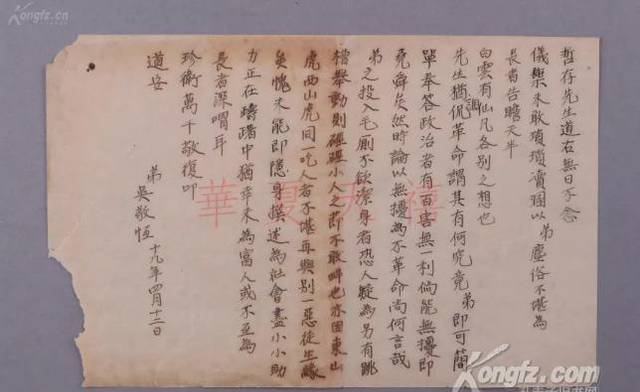 Kongfz.cn
哲存先生道右無日不念
儀未敢瑣瑣瀆以弟塵俗不堪為
長者告瞻天半
白雲有仙凡各別之想也
先生猶侃調革命謂其有何究竟弟即可簡
單奉答政治者有百害無一利倘能無擾即
堯舜矣然時論以無擾為不革命尚何言哉
弟之投入毛廁不欲潔身者恐人疑為另有跳
槽舉動則硜硜小人之節不敢畔也亦因東山
虎西山虎同一吃人者不堪再與別一惡徒生緣
矣愧未能即隱身撰述為社會盡小小助
力正在躊躇中猶幸未為富人或不至為
長者深喟耳
珍衛萬千敬復叩
道安
弟吳敬恆 十九年四月十二日
華夏天禧
Kongfz.com